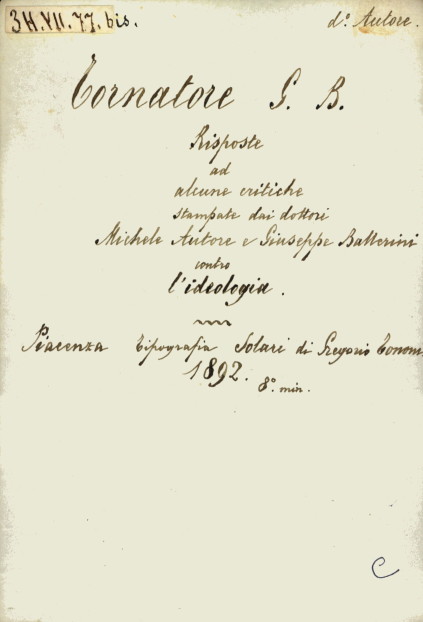 3H.VII.77.bis.
d.º Autore.
Tornatore G. B.
Risposte
ad
alcune critiche
stampate dai dottori
Michele Autore e Giuseppe Ballerini
contro
l'ideologia.
Piacenza Tipografia Solari di Gregorio Tonon
1892.
8º min.
C